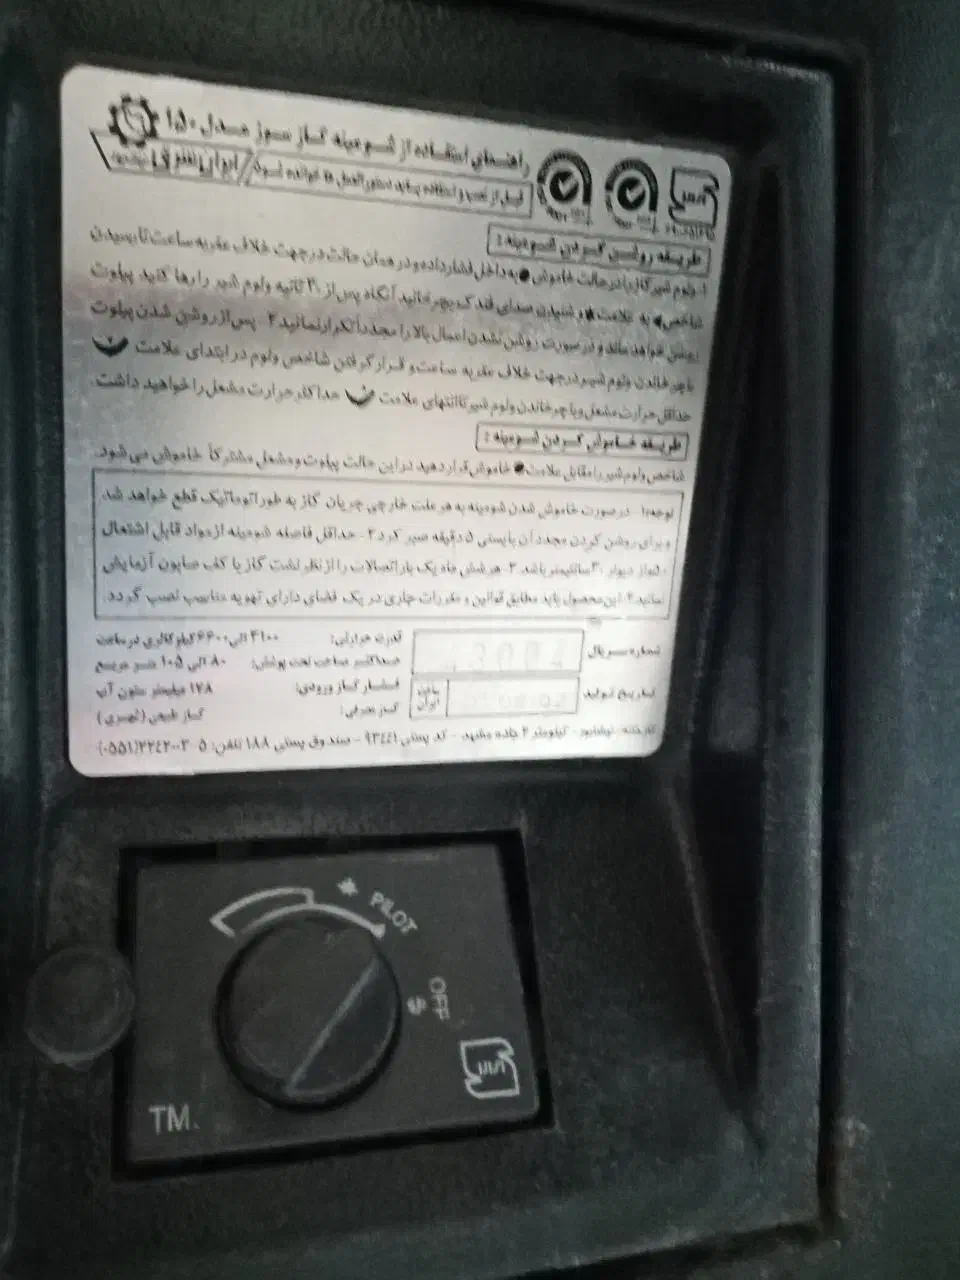 راهنمای استفاده از شومینه گاز سوز مدل ۱۵۰
قبل از نصب و استفاده باید دستورالعمل ها خوانده شود
طریقه روشن کردن شومینه:
۱- ولوم شیر گاز را در حالت خاموش ● به داخل فشار داده و در همان حالت در جهت خلاف عقربه ساعت تا رسیدن
شاخص به علامت و شنیدن صدای فندک بچرخانید آنگاه پس از ۳۰ ثانیه ولوم شیر را رها کنید پیلوت
روشن خواهد ماند و در صورت روشن نشدن اعمال بالا را مجدداً تکرار نمائید ۲- پس از روشن شدن پیلوت
با چرخاندن ولوم شیر در جهت خلاف عقربه ساعت و قرار گرفتن شاخص ولوم در ابتدای علامت
حداقل حرارت مشعل و با چرخاندن ولوم شیر تا انتهای علامت حداکثر حرارت مشعل را خواهید داشت.
طریقه خاموش کردن شومینه:
شاخص ولوم شیر را مقابل علامت ● خاموش قرار دهید در این حالت پیلوت و مشعل مشترکاً خاموش می شود.
توجه: ۱- در صورت خاموش شدن شومینه به هر علت خارجی جریان گاز به طور اتوماتیک قطع خواهد شد
و برای روشن کردن مجدد آن بایستی ۵ دقیقه صبر کرد ۲- حداقل فاصله شومینه از مواد قابل اشتعال
از دیوار ۳۰ سانتیمتر باشد ۳- هر شش ماه یک بار اتصالات را از نظر نشت گاز با کف صابون آزمایش
نمائید ۴- این محصول باید مطابق قوانین و مقررات جاری در یک فضای دارای تهویه مناسب نصب گردد.
شماره سریال
قدرت حرارتی: ۴۱۰۰ الی ۶۶۰۰ کیلو کالری در ساعت
حداکثر مساحت تحت پوشش: ۸۰ الی ۱۰۵ متر مربع
تاریخ تولید ساخت ایران
فشار گاز ورودی: ۱۷۸ میلیمتر ستون آب
گاز مصرفی: گاز طبیعی (شهری)
کارخانه: نیشابور - کیلومتر ۲ جاده مشهد - کد پستی ۹۳۴۴۱ - صندوق پستی ۱۸۸ تلفن:
PILOT
OFF
TM.